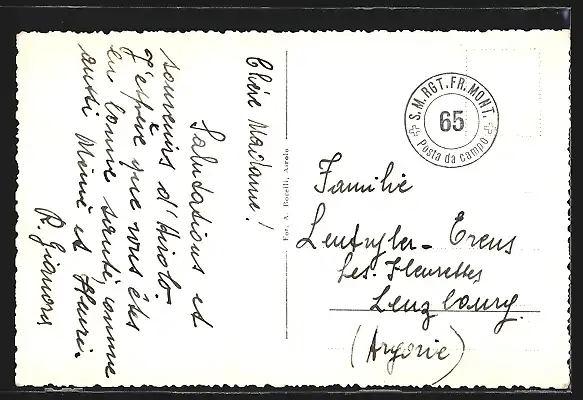 Chère Madame!
Salutations et
souvenirs d'Airolo.
J'espère que vous êtes
en bonne santé, comme
aussi Mimi et Henri.
R. Gianora
Fot. A. Borelli, Airolo
S.M. RGT. FR. MONT.
65
Posta da campo
Familie
Les Fleurettes
Lenzbourg.
(Argovie)